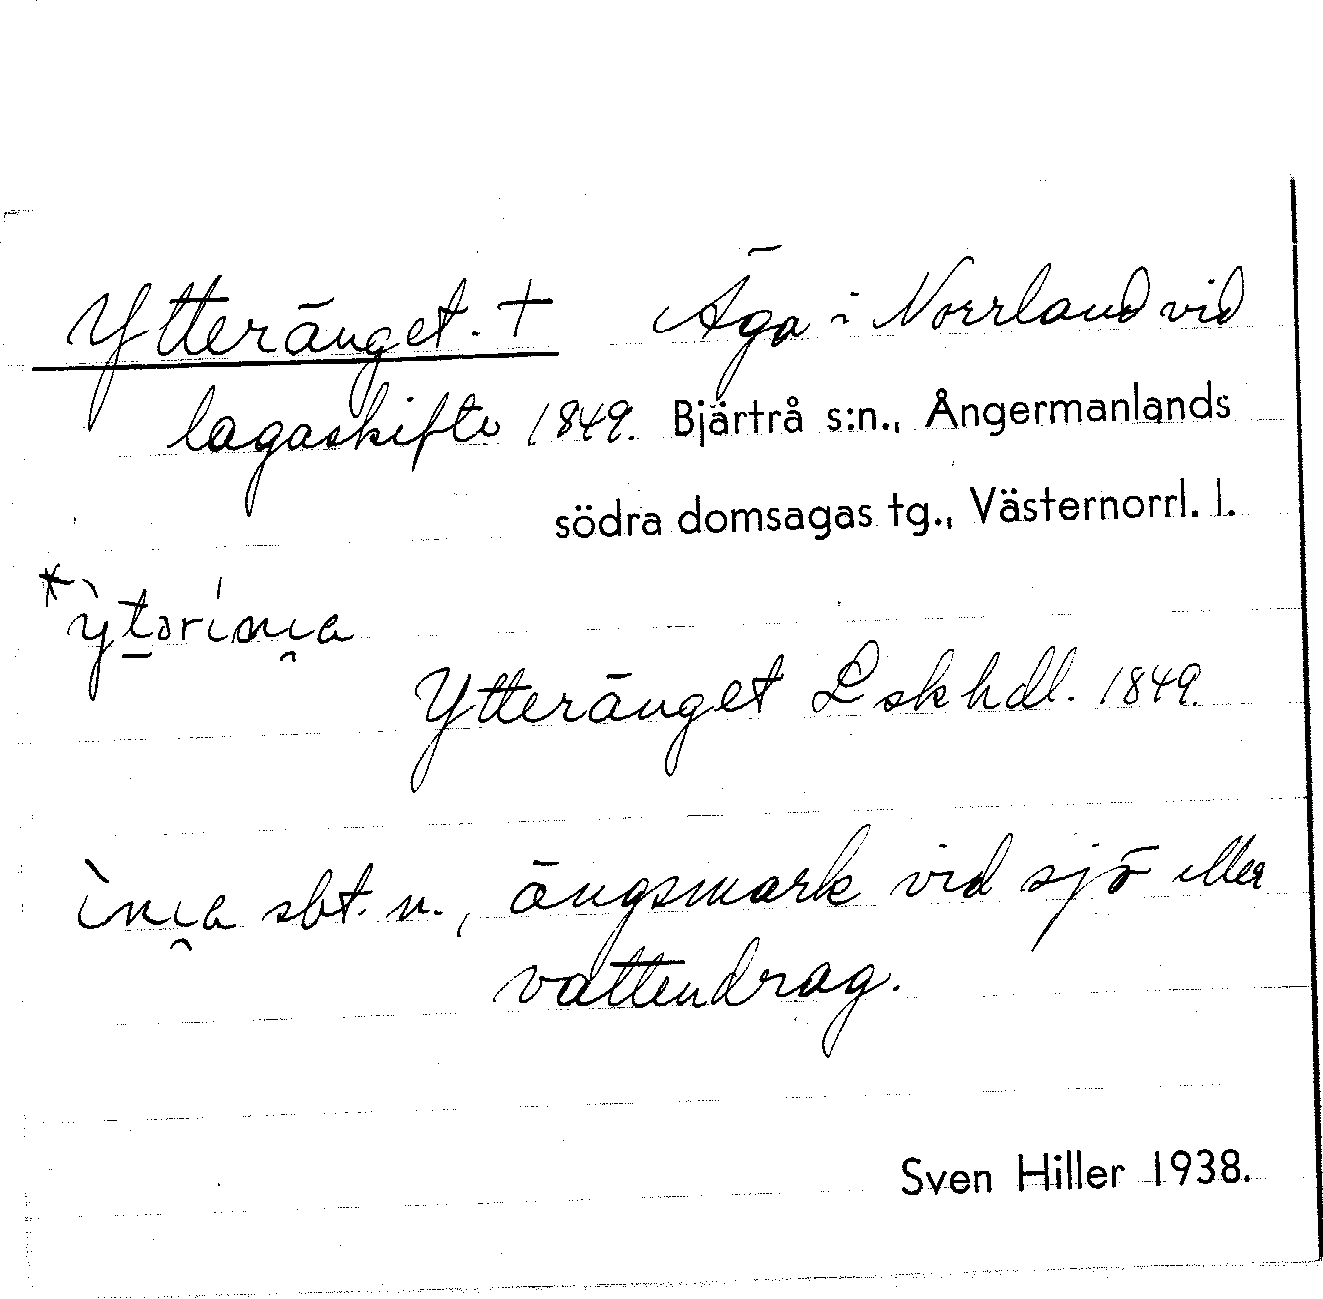 Ytteränget. + Äga i Norrland vid
lagaskifte 1849. Bjärtrå s:n., Ångermanlands
södra domsagas tg., Västernorrl. l.
Ytteränget Lskhdl. 1849.
sbt. n., ängsmark vid sjö eller
vattendrag.
Sven Hiller 1938.